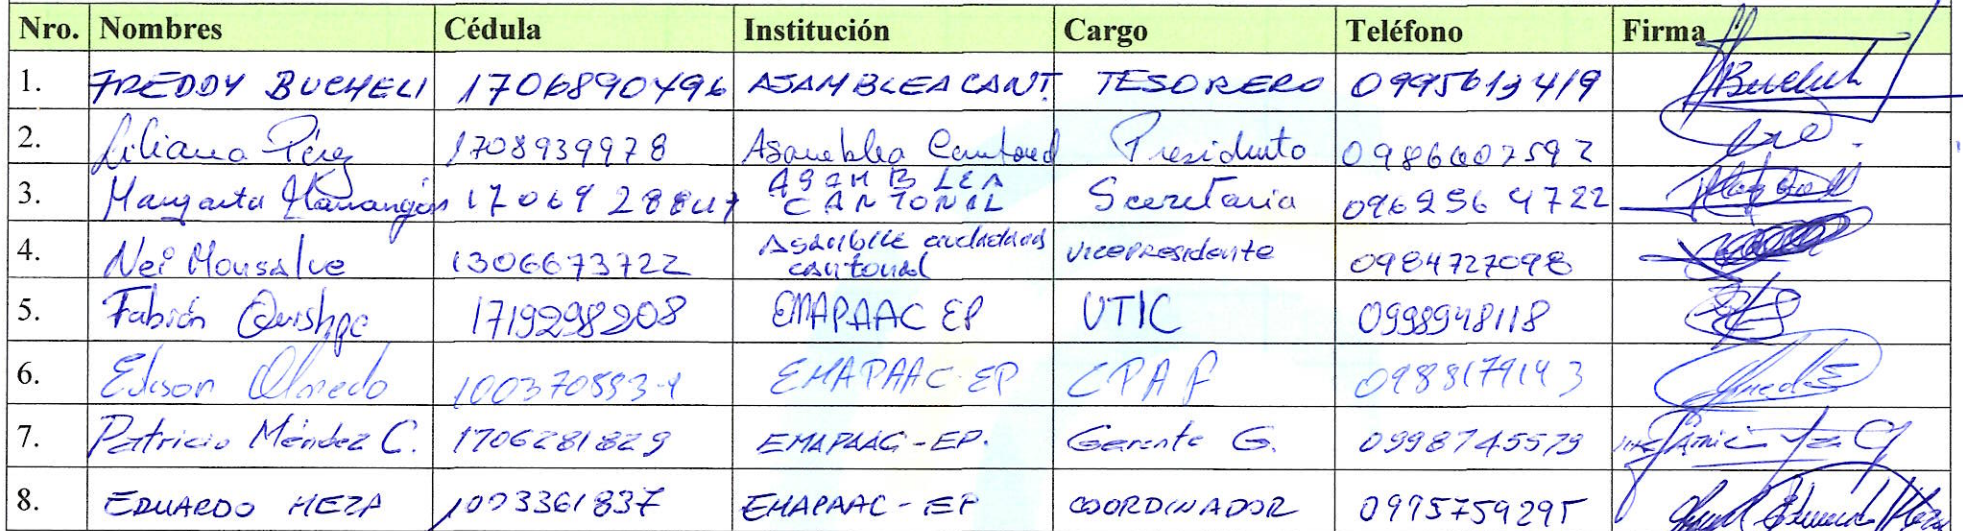 Nro. Nombres Cédula Institución Cargo Teléfono Firma
1. FREDDY BUCHELI 1706890496 ASAMBLEA CANT. TESORERO 0995613419 Bucheli
2. Liliana Pérez 1708939978 Asamblea Cantonal Presidenta 0986602592
3. Margarita 1706928847 ASAMBLEA CANTONAL Secretaria 0962956 4722
4. Nei Monsalve 1306673722 cantonal vicepresidente 0984727098
5. Fabián Quishpe 1719298208 EMAPAAC EP UTIC 0998948118
6. Edison Olmedo 100370593-1 EMAPAAC-EP CPAF 0988179143
7. Patricio Méndez C. 1706281829 EMAPAAC-EP. Gerente G. 0998745579
8. EDUARDO MEZA 1003361837 EMAPAAC-EP COORDINADOR 0995759295